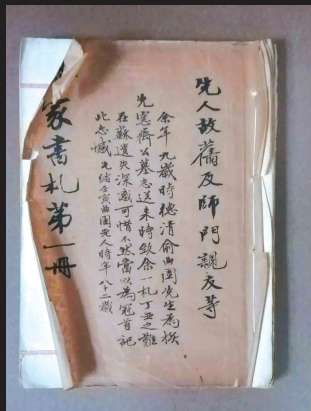 先人故舊及師門親友等
余年九歲時德清俞曲園先生為撰
先愙齋公墓志送来時致余一札丁丑之難
在蘇遺失深感可惜不然當以為冠首記
此志憾 光緒壬寅曲園先人時年八十二歲
家書札第一冊